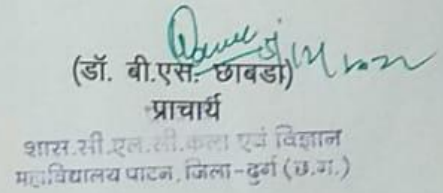 (डॉ. बी.एस. छाबडा)
प्राचार्य
शास.सी.एल.सी.कला एवं विज्ञान
महाविद्यालय पाटन, जिला-दुर्ग (छ.ग.)